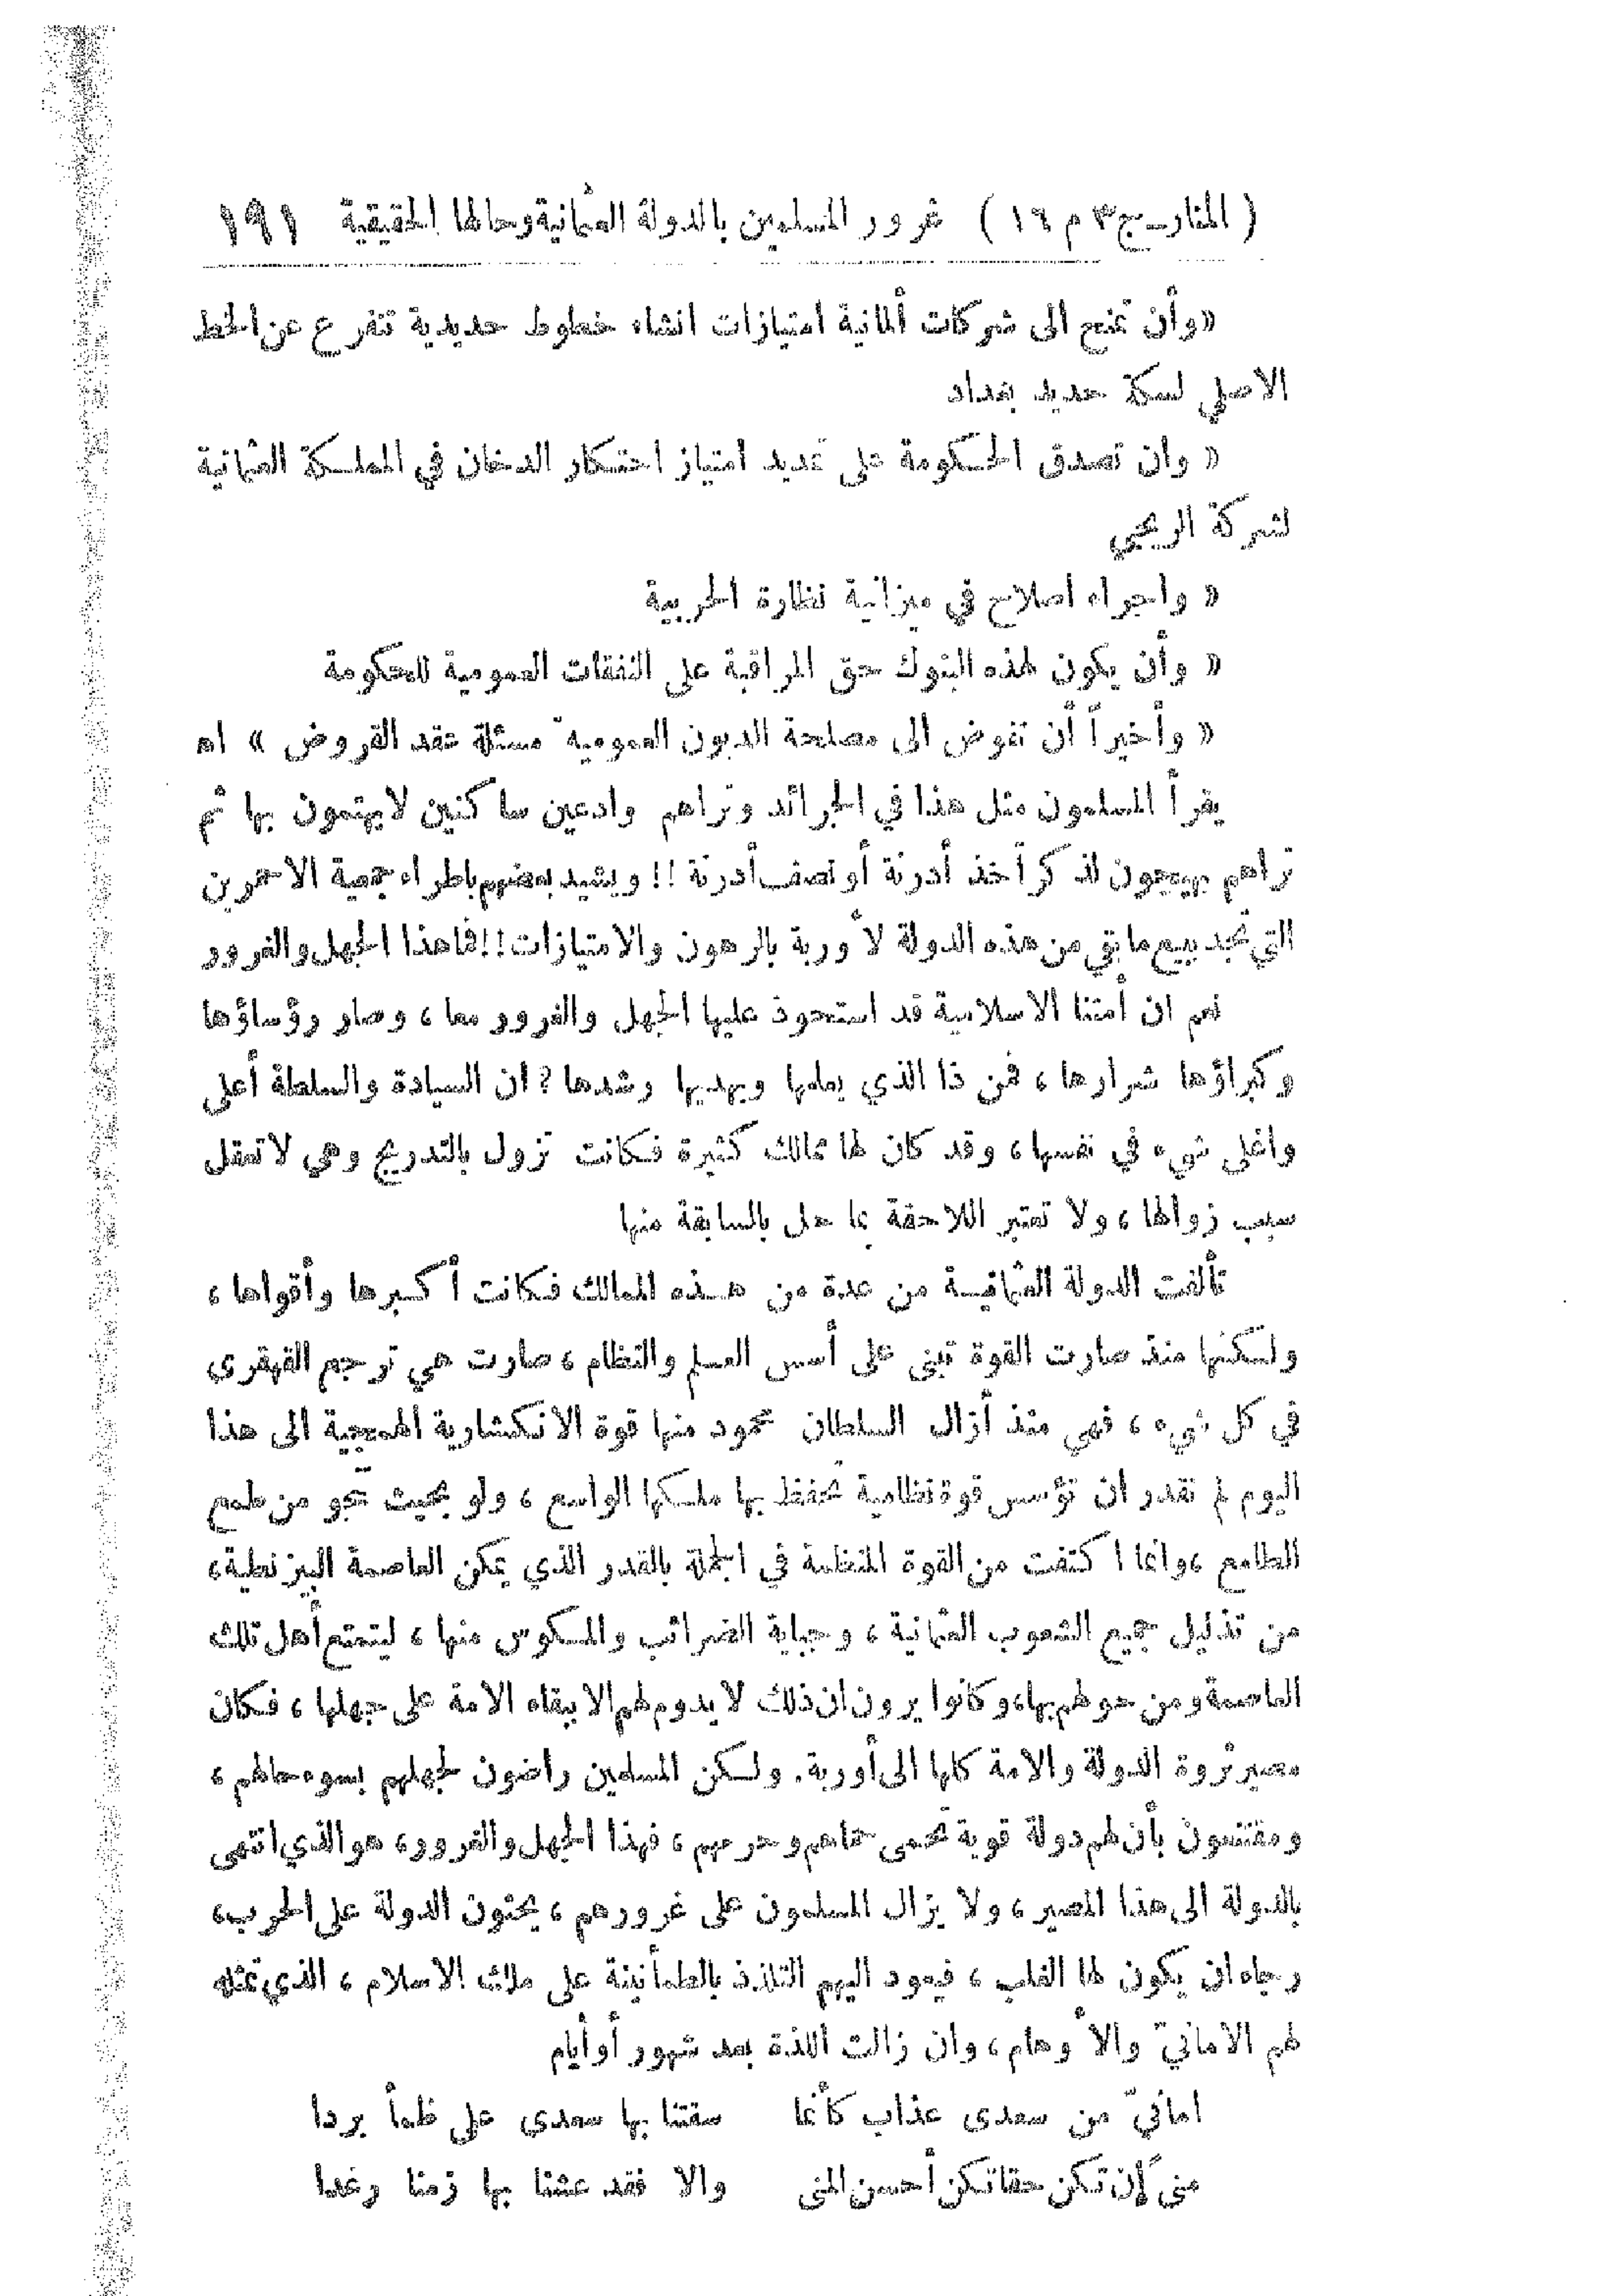 ( المنار ـ ج ٣ م ١٦ ) غرور المسلمين بالدولة العثمانية وحالها الحقيقية ١٩١
«وأن تمنح الى شركات ألمانية امتيازات انشاء خطوط حديدية تتفرع عن الخط
الاصلي لسكة حديد بغداد
« وان تصدق الحكومة على تمديد امتياز احتكار الدخان في المملكة العثمانية
لشركة الريجي
« واجراء اصلاح في ميزانية نظارة الحربية
« وأن يكون لهذه البنوك حق المراقبة على النفقات العمومية للحكومة
« وأخيراً أن تفوض الى مصلحة الديون العمومية مسئلة عقد القروض » اه
يقرأ المسلمون مثل هذا في الجرائد وتراهم وادعين ساكنين لايهتمون بها ثم
تراهم يهيجون لذكر أخذ أدرنة أو نصف أدرنة !! ويشيد بعضهم باطراء جمعية الاحمرين
التي تجد ببيع ما بقي من هذه الدولة لأوربة بالرهون والامتيازات!! فما هذا الجهل والغرور
نعم ان أمتنا الاسلامية قد استحوذ عليها الجهل والغرور معا ، وصار رؤساؤها
وكبراؤها شرارها ، فمن ذا الذي يعلمها ويهديها رشدها ? ان السيادة والسلطة أعلى
واغلى شيء في نفسها ، وقد كان لها ممالك كثيرة فكانت تزول بالتدريج وهي لاتعقل
سبب زوالها ، ولا تعتبر اللاحقة بما حل بالسابقة منها
تألفت الدولة العثمانية من عدة من هذه الممالك فكانت أكبرها وأقواها ،
ولكنها منذ صارت القوة تبنى على أسس العلم والنظام ، صارت هي ترجع القهقرى
في كل شيء ، فهي منذ أزال السلطان محمود منها قوة الانكشارية الهمجية الى هذا
اليوم لم تقدر ان تؤسس قوة نظامية تحفظ بها ملكها الواسع ، ولو بحيث تنجو من طمع
الطامع ، وانما اكتفت من القوة المنظمة في الجملة بالقدر الذي يمكن العاصمة البيزنطية ،
من تذليل جميع الشعوب العثمانية ، وجباية الضرائب والمكوس منها ، ليتمتع أهل تلك
العاصمة ومن حولهم بها، وكانوا يرون ان ذلك لا يدوم لهم الا ببقاء الامة على جهلها ، فكان
مصير ثروة الدولة والامة كلها الى أوربة. ولكن المسلمين راضون لجهلهم بسوء حالهم ،
ومقتنعون بأن لهم دولة قوية تحمى حماهم وحرمهم ، فهذا الجهل والغرور، هو الذي انتهى
بالدولة الى هذا المصير ، ولا يزال المسلمون على غرورهم ، يحثون الدولة على الحرب ،
رجاء ان يكون لها الغلب ، فيعود اليهم التلذذ بالطمأنينة على ملك الاسلام ، الذي تمثله
لهم الامانيّ والأوهام ، وان زالت اللذة بعد شهور أو أيام
امانيّ من سعدى عذاب كأنما سقتنا بها سعدى على ظمأ بردا
منىً إن تكن حقا تكن أحسن المنى والا فقد عشنا بها زمنا رغدا